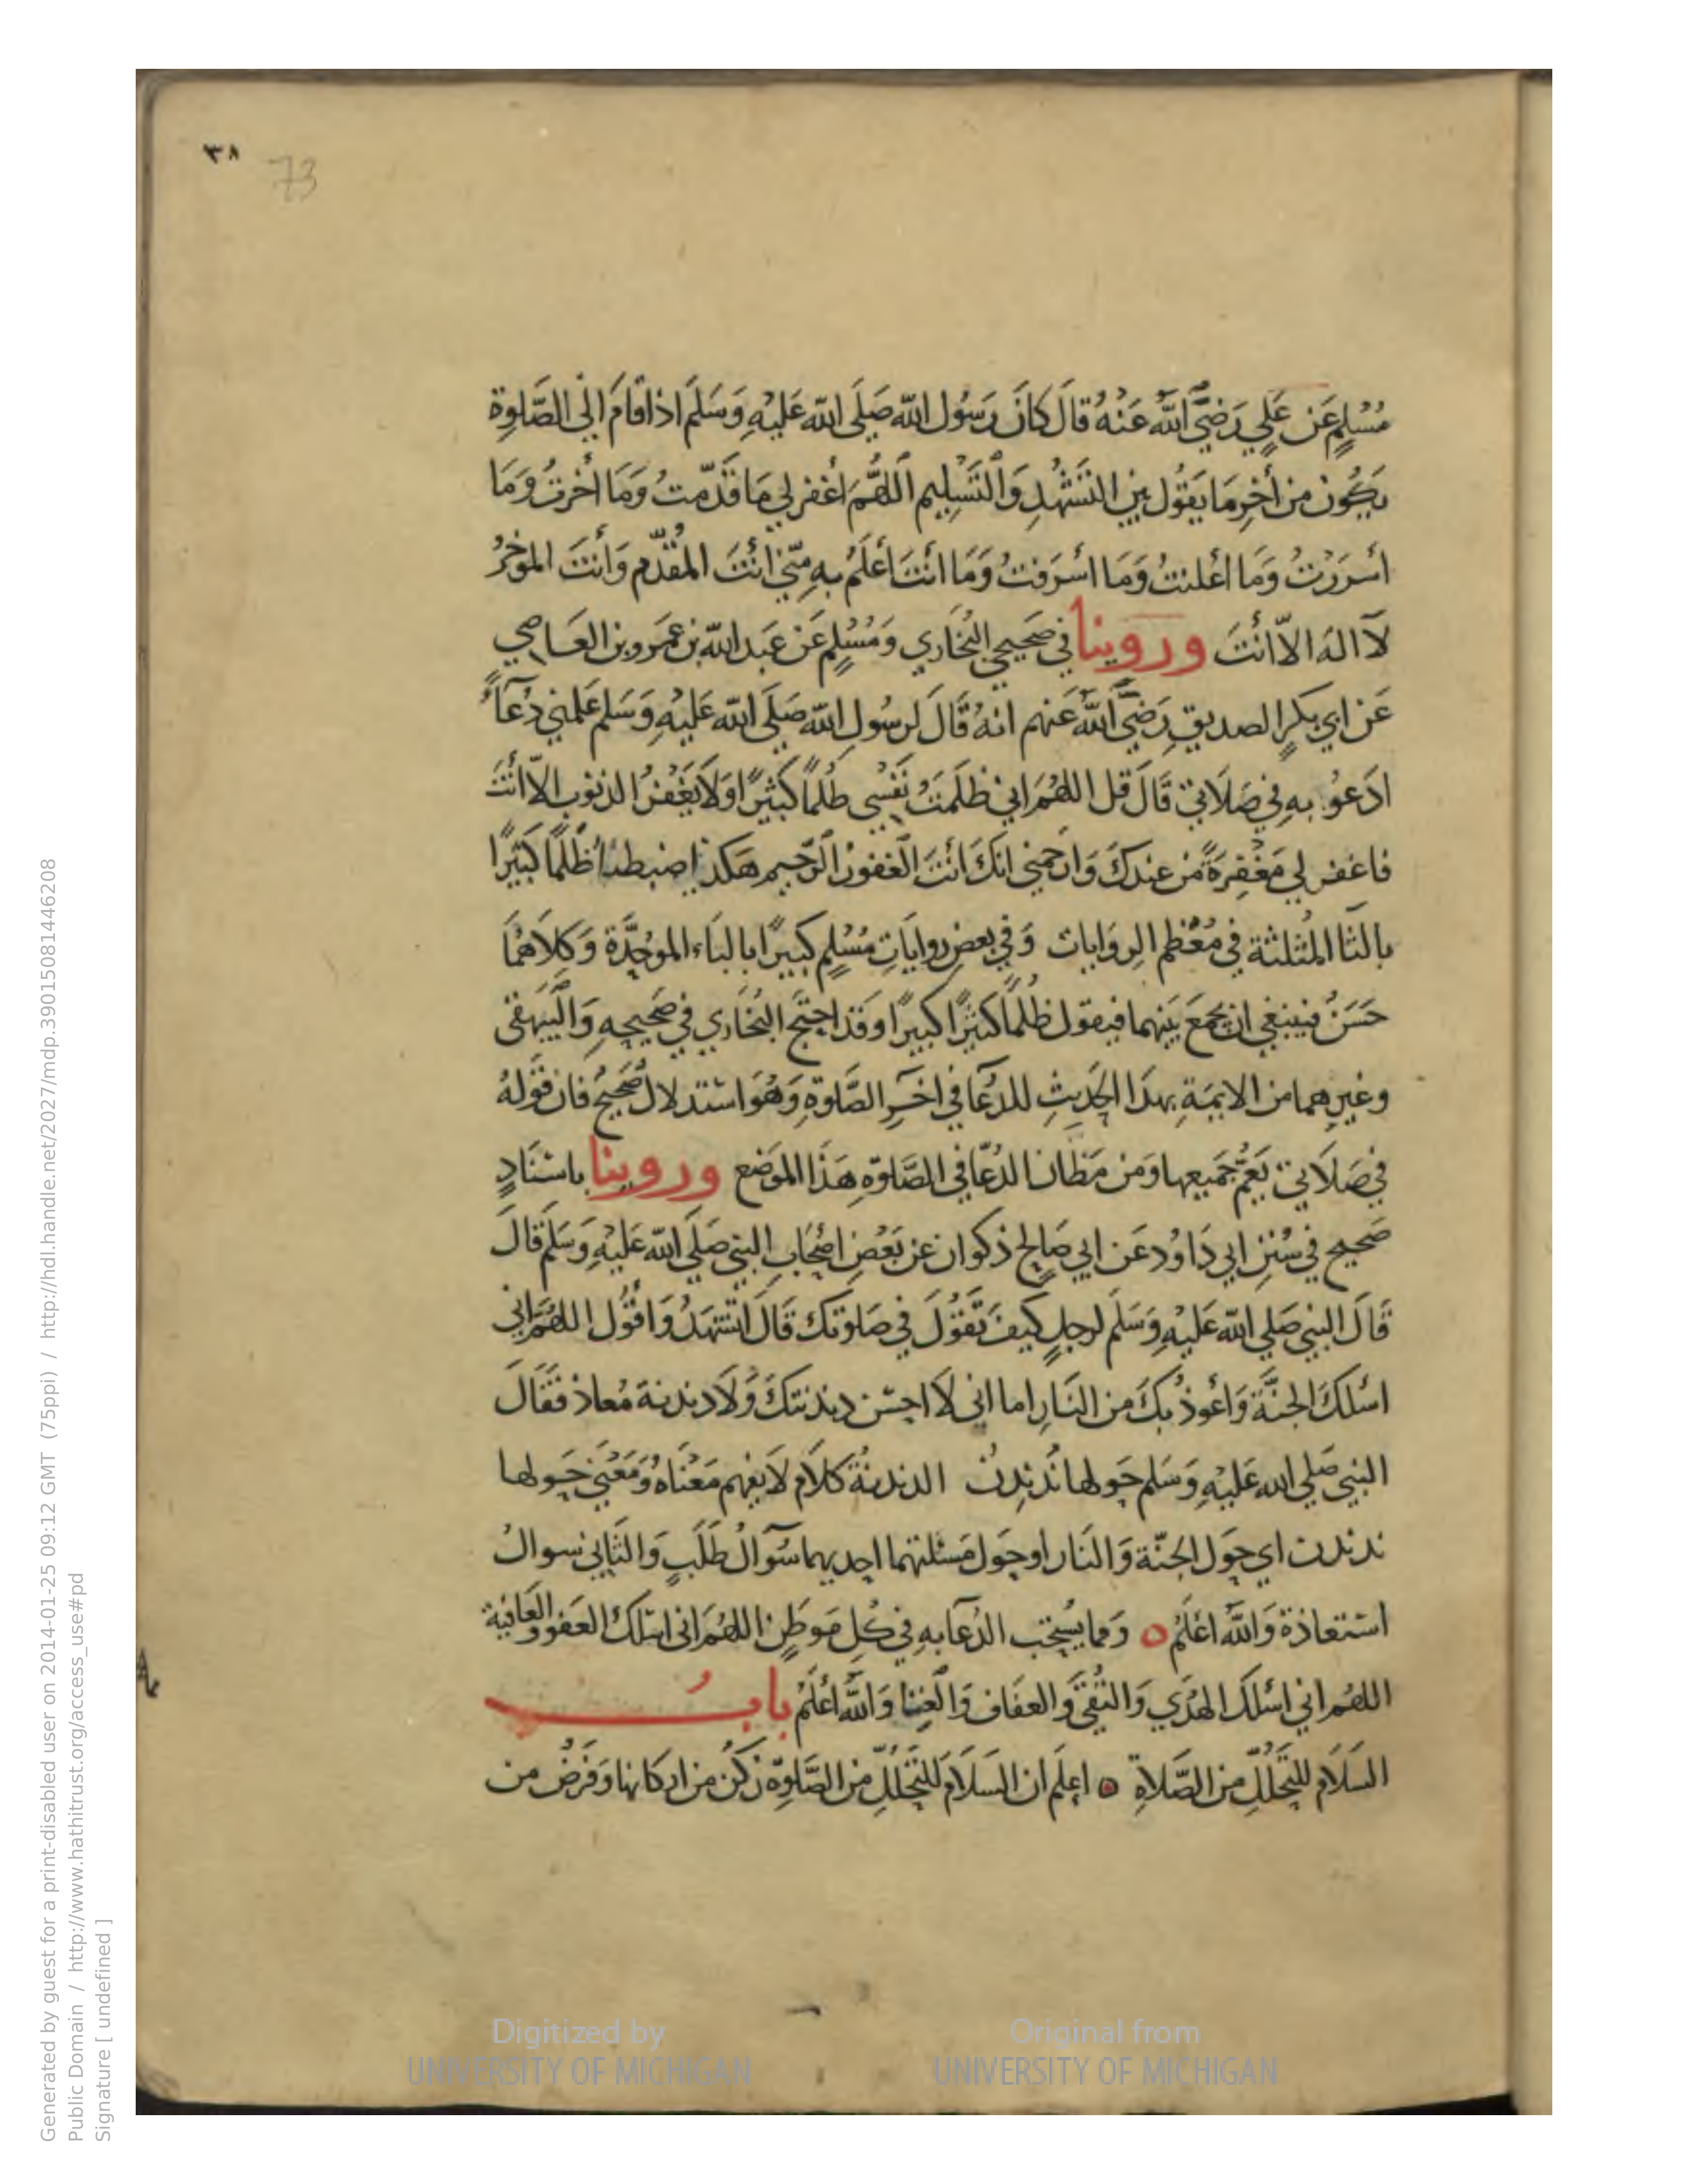 ٣٨ 73
مُسْلِمٍ عَن عَلِيٍ رَضِيَ اللَّه عَنْهُ قَالَ كَانَ رَسُول اللّه صَلَى اللّه عَلَيْهِ وَسَلَمَ اذا قامَ الى الصَّلوة
يَكُون مِن أخِرِ مَا يَقُول بين التَشَهُدِ وَالتَسْلِيم اللهُمَ اغفر لي مَا قَدّمتُ وَمَا أخرتُ وَمَا
أسْرَرْتُ وَمَا أعْلنتُ وَمَا اسْرَفتُ وَمَا انتَ أعْلَمُ بِهِ مِنّي أنتَ المُقَدّم وَأنتَ الموخرُ
لَا الهَ الاّ أنتَ وروينا في صَحِيحي البُخَاري وَمُسْلِمٍ عَن عَبد اللّه بن عَمرو بن العَاصِي
عَن ابي بكرٍ الصديقِ رَضِيَ اللَّه عَنهم انهُ قَالَ لرسُولِ اللّه صَلَى اللّه عَليهِ وَسَلم عَلمني دُعَآءً
ادَعُو به في صَلَاتي قَالَ قل اللهُمَ اني ظَلَمتُ نَفْسِي ظُلمًا كَثيرًا وَلَا يَغْفِرُ الذنوب الاّ انتَ
فاغفر لي مَغْفِرَةً من عندكَ وَارحَمني انكَ انتَ الغفور الرّحيم هَكذا ضبطناهُ ظُلمًا كَثِيرًا
بالثا المُثلثة في مُعْظم الروَايات وَفي بعض روايَاتِ مُسْلِمٍ كبيرًا بالبَاء الموَحَّدَة وَكِلَاهُمَا
حَسَنٌ فينبغي ان يجمَعَ بَينهما فيقول ظُلمًا كَثيرًا كَبيرًا وقَد احتَج البُخَاري في صَحِيحِهِ وَالبَيهقى
وغيرهما من الايمَة بهذا الحَدِيثِ للدُعَا في اخَرِ الصَّلوةِ وَهُوَ استدلالٌ صَحِيحٌ فان قَولهُ
في صَلَاتي يَعُمُّ جَميعها وَمن مَظان الدُعَا في الصَّلوةِ هَذَا الموَضع وروينا باسْنَادٍ
صَحيح في سُنَن ابي دَاوُد عَن ابي صَالِحٍ ذكوان عَن بَعْضِ اصْحَابِ النبي صَلَى اللّه عَلَيْهِ وَسَلَم قَالَ
قَالَ النبي صَلى اللّه عَلَيْهِ وَسَلَم لرجلٍ كَيفَ تَقُولُ في صَلوتك قَالَ اتشَهَدُ وَاقُول اللهُمَ اني
اسْئلكَ الجنَّة وَأعُوذ بكَ من النَارِ اما اني لَا احِسْن دندنتكَ وَلَا دندنة مُعاذ فقَالَ
النبي صَلى الله عَلَيْهِ وَسَلم حَولها نُدَندِن الدندنةُ كلامٌ لَا يفهم مَعْنَاهُ وَمَعْنى حَولها
ندندن اي حَول الجنّة وَالنار او حَول مَسئلتهما احديهما سُوَالُ طَلَبٍ وَالثاني سوالُ
استعَاذة وَاللَّه اعْلَمُ وَمما يسُتحب الدُعَا به في كُلِ مَوطن اللهُمَ انى اسئلكُ العَفو وَالعَافية
اللهُم اني اسْئلكَ الهُدَي وَالتُقَى وَالعفَاف وَالغِنا وَاللَّهُ أعْلَمُ بابُ
السَلَام للتحَللِ من الصَّلاةِ اعلَم ان السَلَام للتحَللِ من الصَّلوةِ رُكنٌ من اركانها وَفَرضٌ من
Digitized by
UNIVERSITY OF MICHIGAN
Original from
UNIVERSITY OF MICHIGAN
Generated by guest for a print-disabled user on 2014-01-25 09:12 GMT (75ppi) / http://hdl.handle.net/2027/mdp.39015081446208
Public Domain / http://www.hathitrust.org/access_use#pd
Signature [ undefined ]